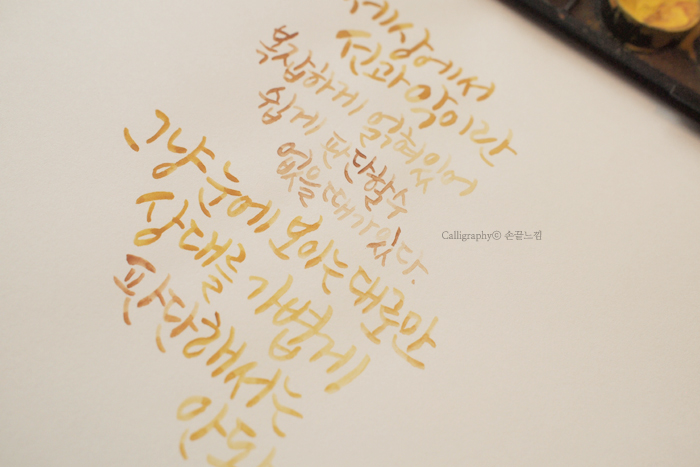 세상에서
선과 악이란
복잡하게 얽혀있어
쉽게 판단할수
없을 때가 있다.
그냥 눈에 보이는대로만
상대를 가볍게
판단해서는
안된
Calligraphyⓒ 손끝느낌